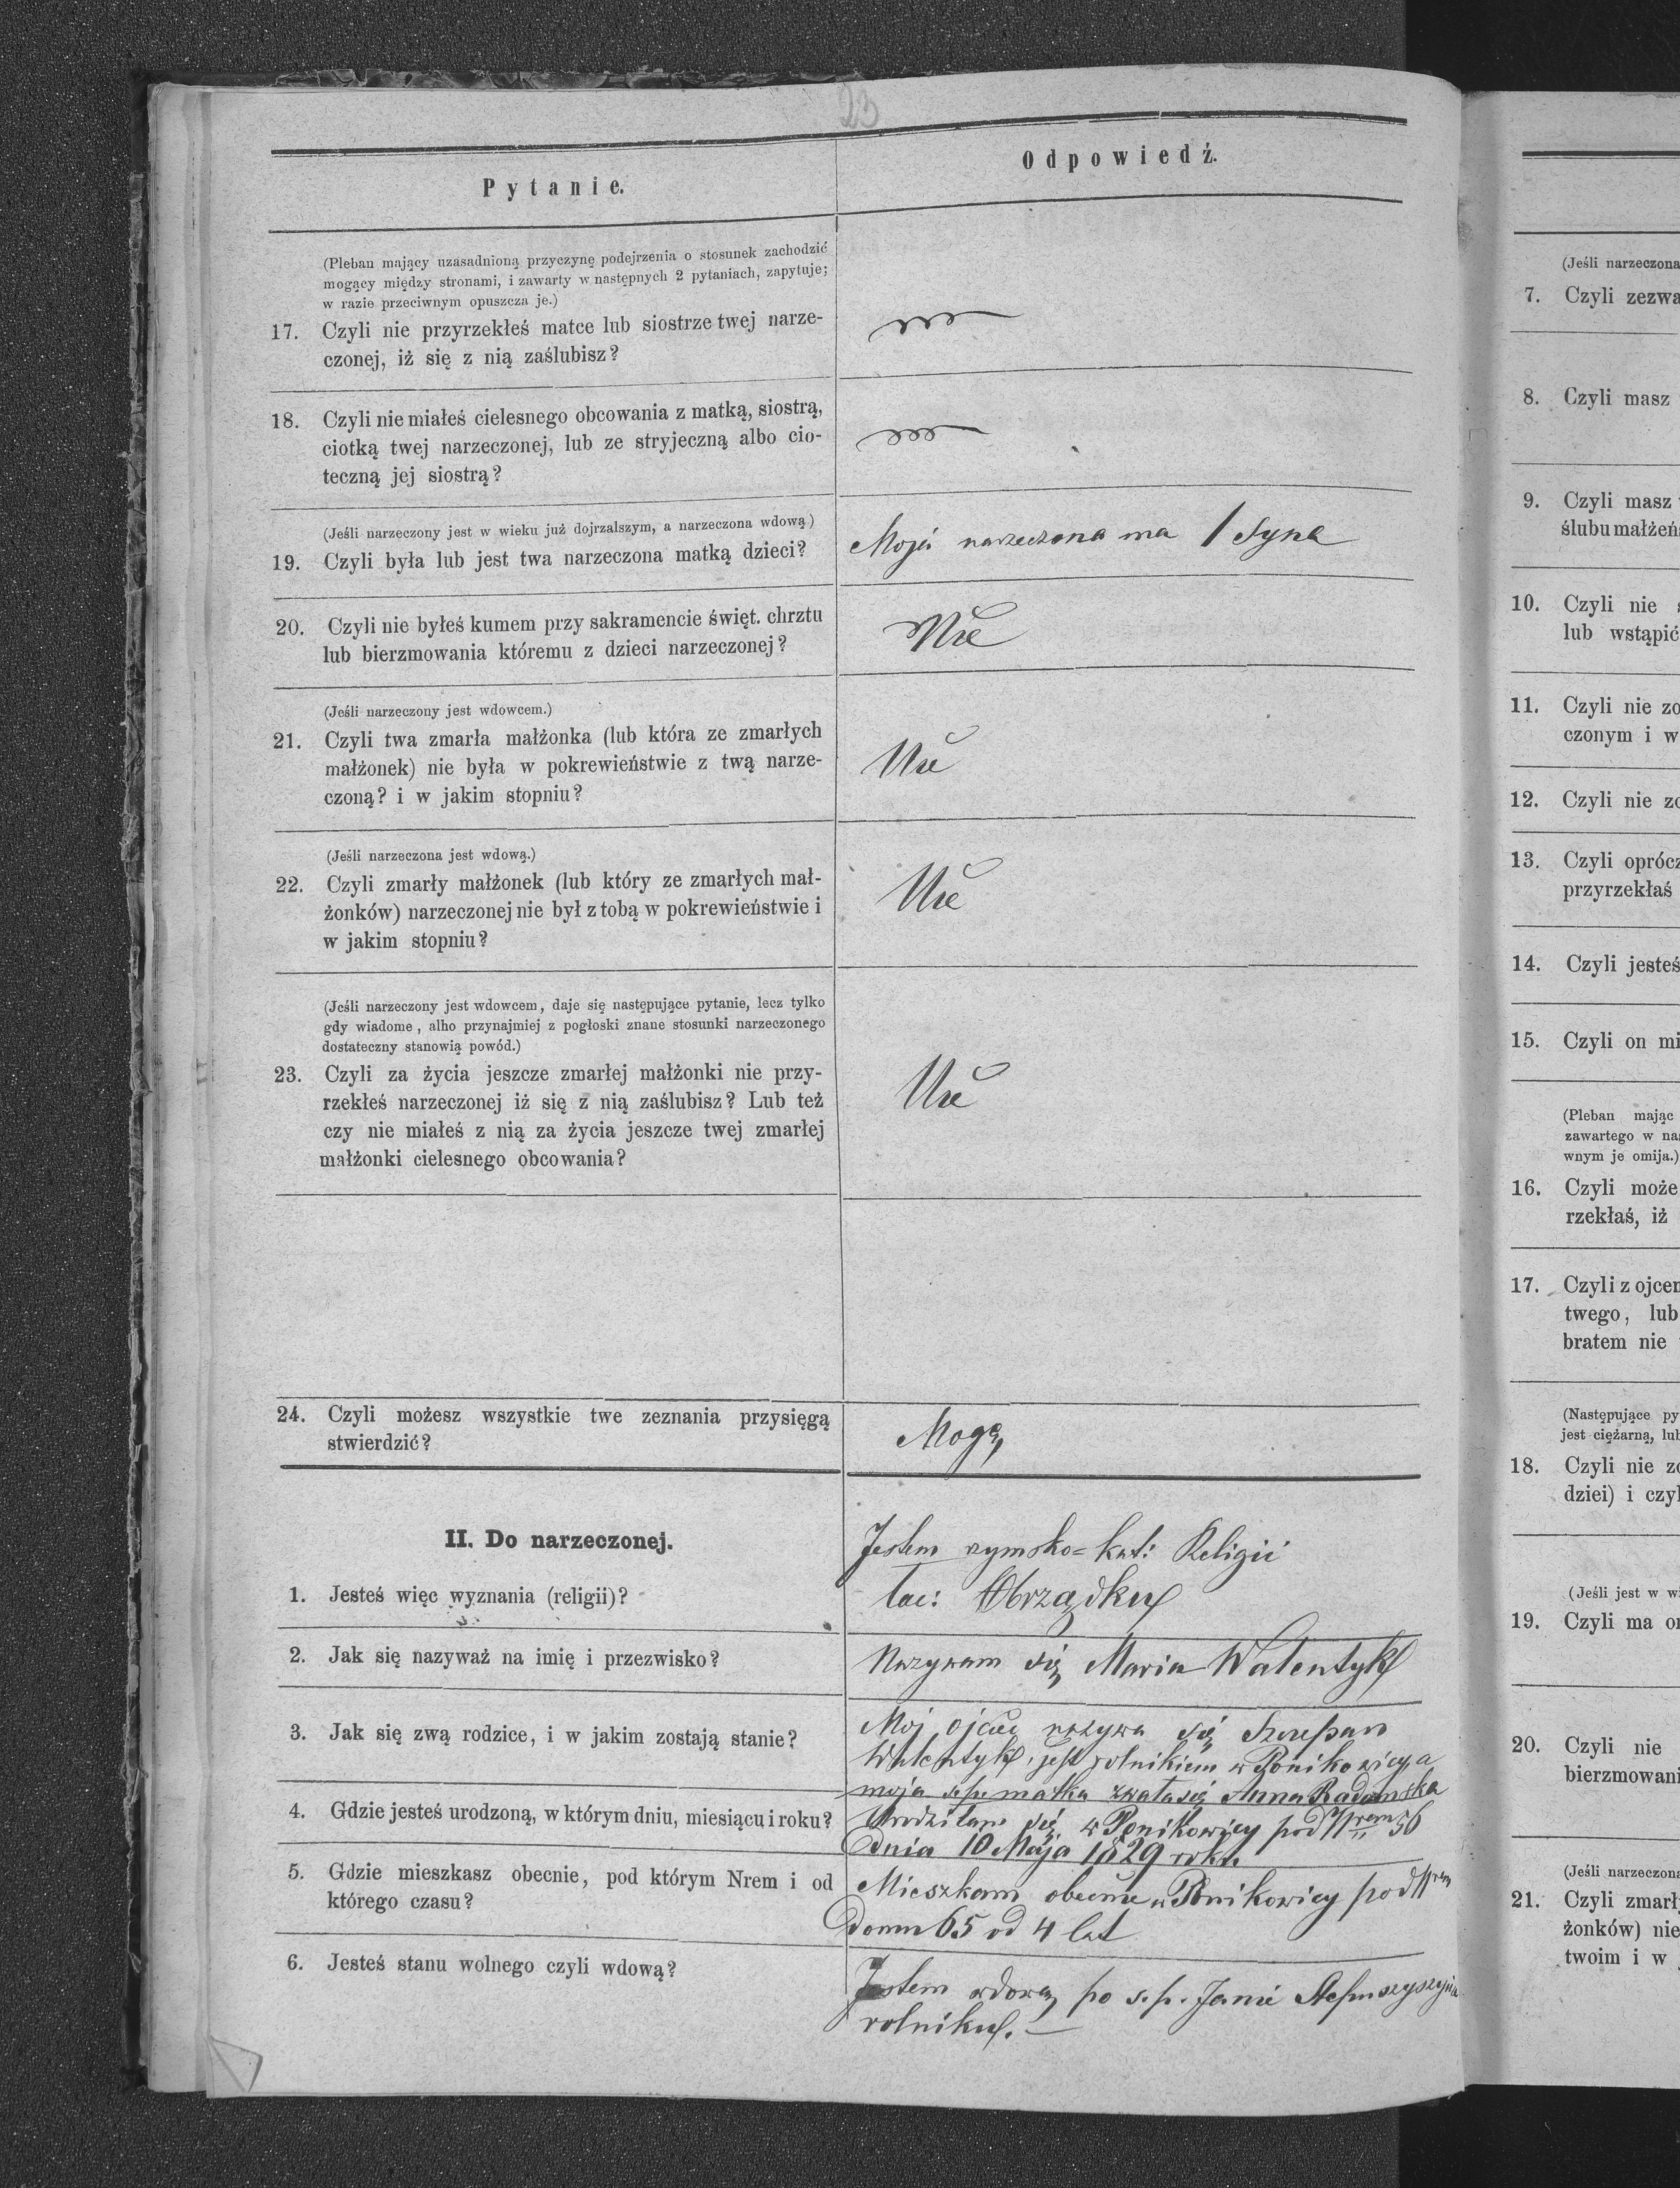 23
Pytanie.
Odpowiedź.
(Pleban mający uzasadnioną przyczynę podejrzenia o stosunek zachodzić
mogący między stronami, i zawarty w następnych 2 pytaniach, zapytuje;
w razie przeciwnym opuszcza je.)
17. Czyli nie przyrzekłeś matce lub siostrze twej narze-
czonej, iż się z nią zaślubisz?
18. Czyli nie miałeś cielesnego obcowania z matką, siostrą,
ciotką twej narzeczonej, lub ze stryjeczną albo cio-
teczną jej siostrą?
(Jeśli narzeczony jest w wieku już dojrzalszym, a narzeczona wdową)
19. Czyli była lub jest twa narzeczona matką dzieci?
Moja narzeczona ma 1 Syna
20. Czyli nie byłeś kumem przy sakramencie święt. chrztu
lub bierzmowania któremu z dzieci narzeczonej?
Nie
(Jeśli narzeczony jest wdowcem.)
21. Czyli twa zmarła małżonka (lub która ze zmarłych
małżonek) nie była w pokrewieństwie z twą narze-
czoną? i w jakim stopniu?
Nie
(Jeśli narzeczona jest wdową.)
22. Czyli zmarły małżonek (lub który ze zmarłych mał-
żonków) narzeczonej nie był z tobą w pokrewieństwie i
w jakim stopniu?
Nie
(Jeśli narzeczony jest wdowcem, daje się następujące pytanie, lecz tylko
gdy wiadome, albo przynajmiej z pogłoski znane stosunki narzeczonego
dostateczny stanowią powód.)
23. Czyli za życia jeszcze zmarłej małżonki nie przy-
rzekłeś narzeczonej iż się z nią zaślubisz? Lub też
czy nie miałeś z nią za życia jeszcze twej zmarłej
małżonki cielesnego obcowania?
Nie
24. Czyli możesz wszystkie twe zeznania przysięgą
stwierdzić?
Mogę
II. Do narzeczonej.
1. Jesteś więc wyznania (religii)?
Jestem rzymsko=kat: Religii
łac: Obrządku
2. Jak się nazyważ na imię i przezwisko?
Nazywam się Maria Walentyk
3. Jak się zwą rodzice, i w jakim zostają stanie?
Moj ojciec nazywa się Szczepan
Walentyk, jest rolnikiem w Ponikowicy, a
moja s.p. matka zwała się Anna Radomska
4. Gdzie jesteś urodzoną, w którym dniu, miesiącu i roku?
Urodziłam się w Ponikowicy pod Nrem 56
dnia 10 Maja 1829 roku
5. Gdzie mieszkasz obecnie, pod którym Nrem i od
którego czasu?
Mieszkam obecnie w Ponikowicy pod Nrem
domu 65 od 4 lat
6. Jesteś stanu wolnego czyli wdową?
Jestem wdową po s.p. Janie
rolniku.
(Jeśli narzeczona
7. Czyli zezwa
8. Czyli masz
9. Czyli masz
ślubu małżeń
10. Czyli nie
lub wstąpić
11. Czyli nie zo
czonym i w
12. Czyli nie zo
13. Czyli oprócz
przyrzekłaś
14. Czyli jesteś
15. Czyli on mi
(Pleban mając
zawartego w na
wnym je omija.)
16. Czyli może
rzekłaś, iż
17. Czyli z ojcem
twego, lub
bratem nie
(Następujące py
jest ciężarną, lub
18. Czyli nie zo
dziei) i czyl
(Jeśli jest w wi
19. Czyli ma on
20. Czyli nie
bierzmowani
(Jeśli narzeczona
21. Czyli zmarły
żonków) nie
twoim i w